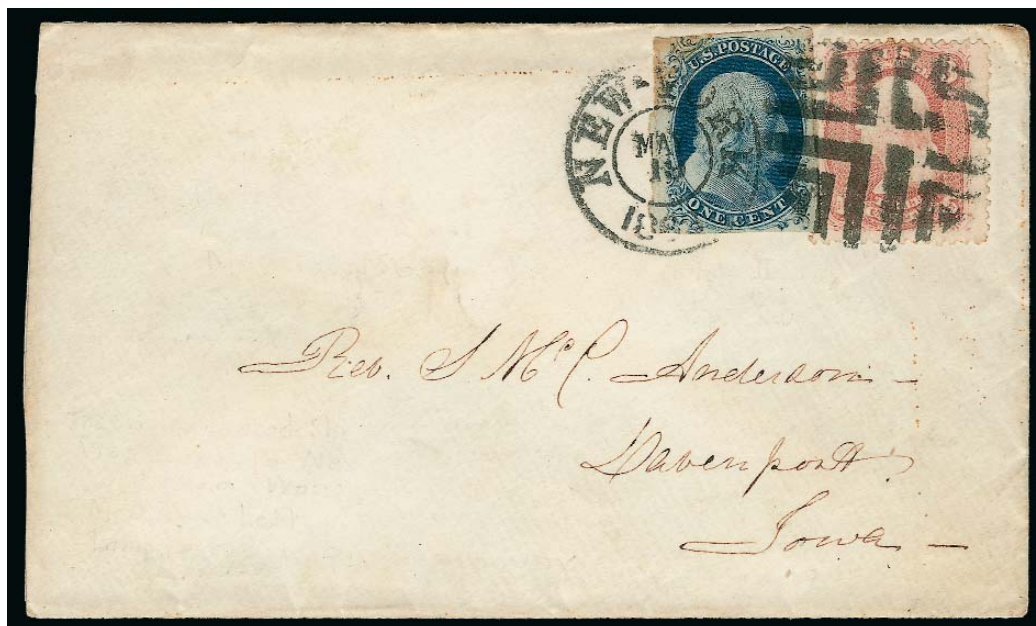 NEW-YORK
U.S. POSTAGE
ONE CENT
Rev. S McC. Anderson
Davenport
Iowa